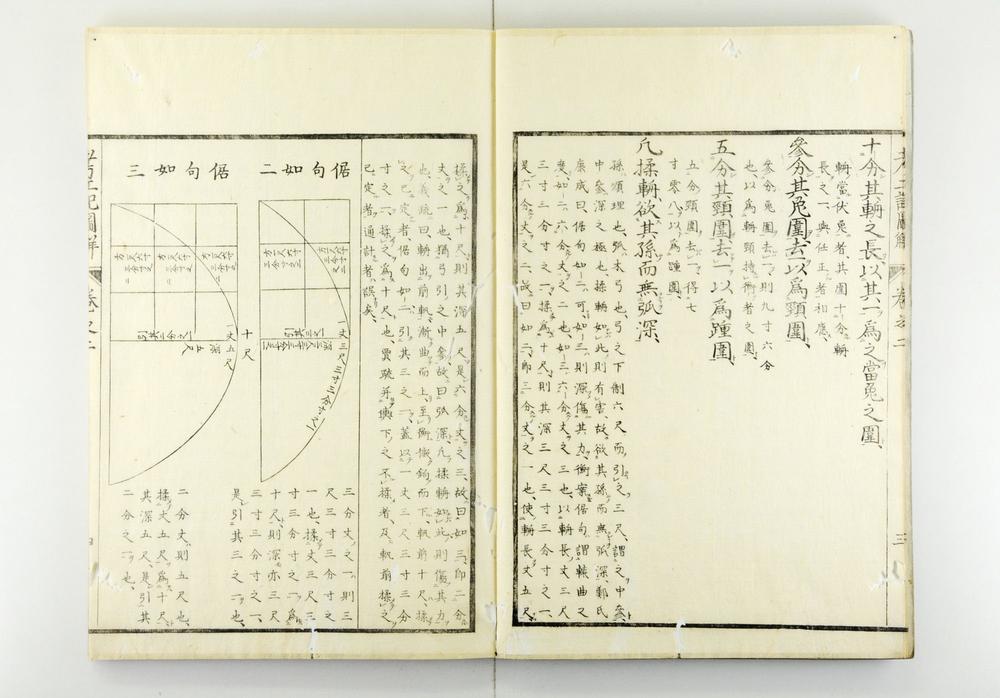 十分其輈之長以其一爲之當兔之圍
輈當伏兔者其圍十分輈
長之一與任正者相應
參分其兔圍去一以爲頸圍
參分兔圍去一則九寸六分
也以爲輈頸持衡者之圍
五分其頸圍去一以爲踵圍
五分頸圍去一得七
寸零八以爲踵圍
凡揉輈欲其孫而無弧深
孫順理也弧木弓也弓之下制六尺而引之三尺謂之中參
中參深之極也揉輈如此則有害故欲其孫而無弧深鄭氏
康成曰倨句如二可如三則深傷其力衡案倨句謂輈曲之
度如二六分丈之二也如三六分丈之三也以輈長丈三尺
三寸三分寸之一揉爲十尺則其深三尺三寸三分寸之一
是六分丈之二故曰如二即三分丈之一也使輈長丈五尺
考工記圖解
卷之二
三
揉之爲十尺則其深五尺是六分丈之三故曰如三即二分
丈之一也猶弓引之中參故曰弧深凡揉輈如此則傷其力
也義疏曰輈出前軓漸曲而上至衡機鉤而下軓前十尺揉
之已定者倨句如二引其三之一蓋以一丈三尺三寸三分
寸之一揉之爲十尺也賈疏并輿下之不揉者及軓前揉之
已定者通計者誤矣
倨句如二
倨句如三
十尺
一丈五尺
一丈三尺三寸三分寸之一
三分丈之一則三
尺三寸三分寸之
一也揉丈三尺三
寸三分寸之一爲
十尺則深亦三尺
三寸三分寸之一
是引其三之一也
二分丈則五尺也
揉丈五尺爲十尺
其深五尺是引其
二分之一也
考工記圖解
卷之二
四